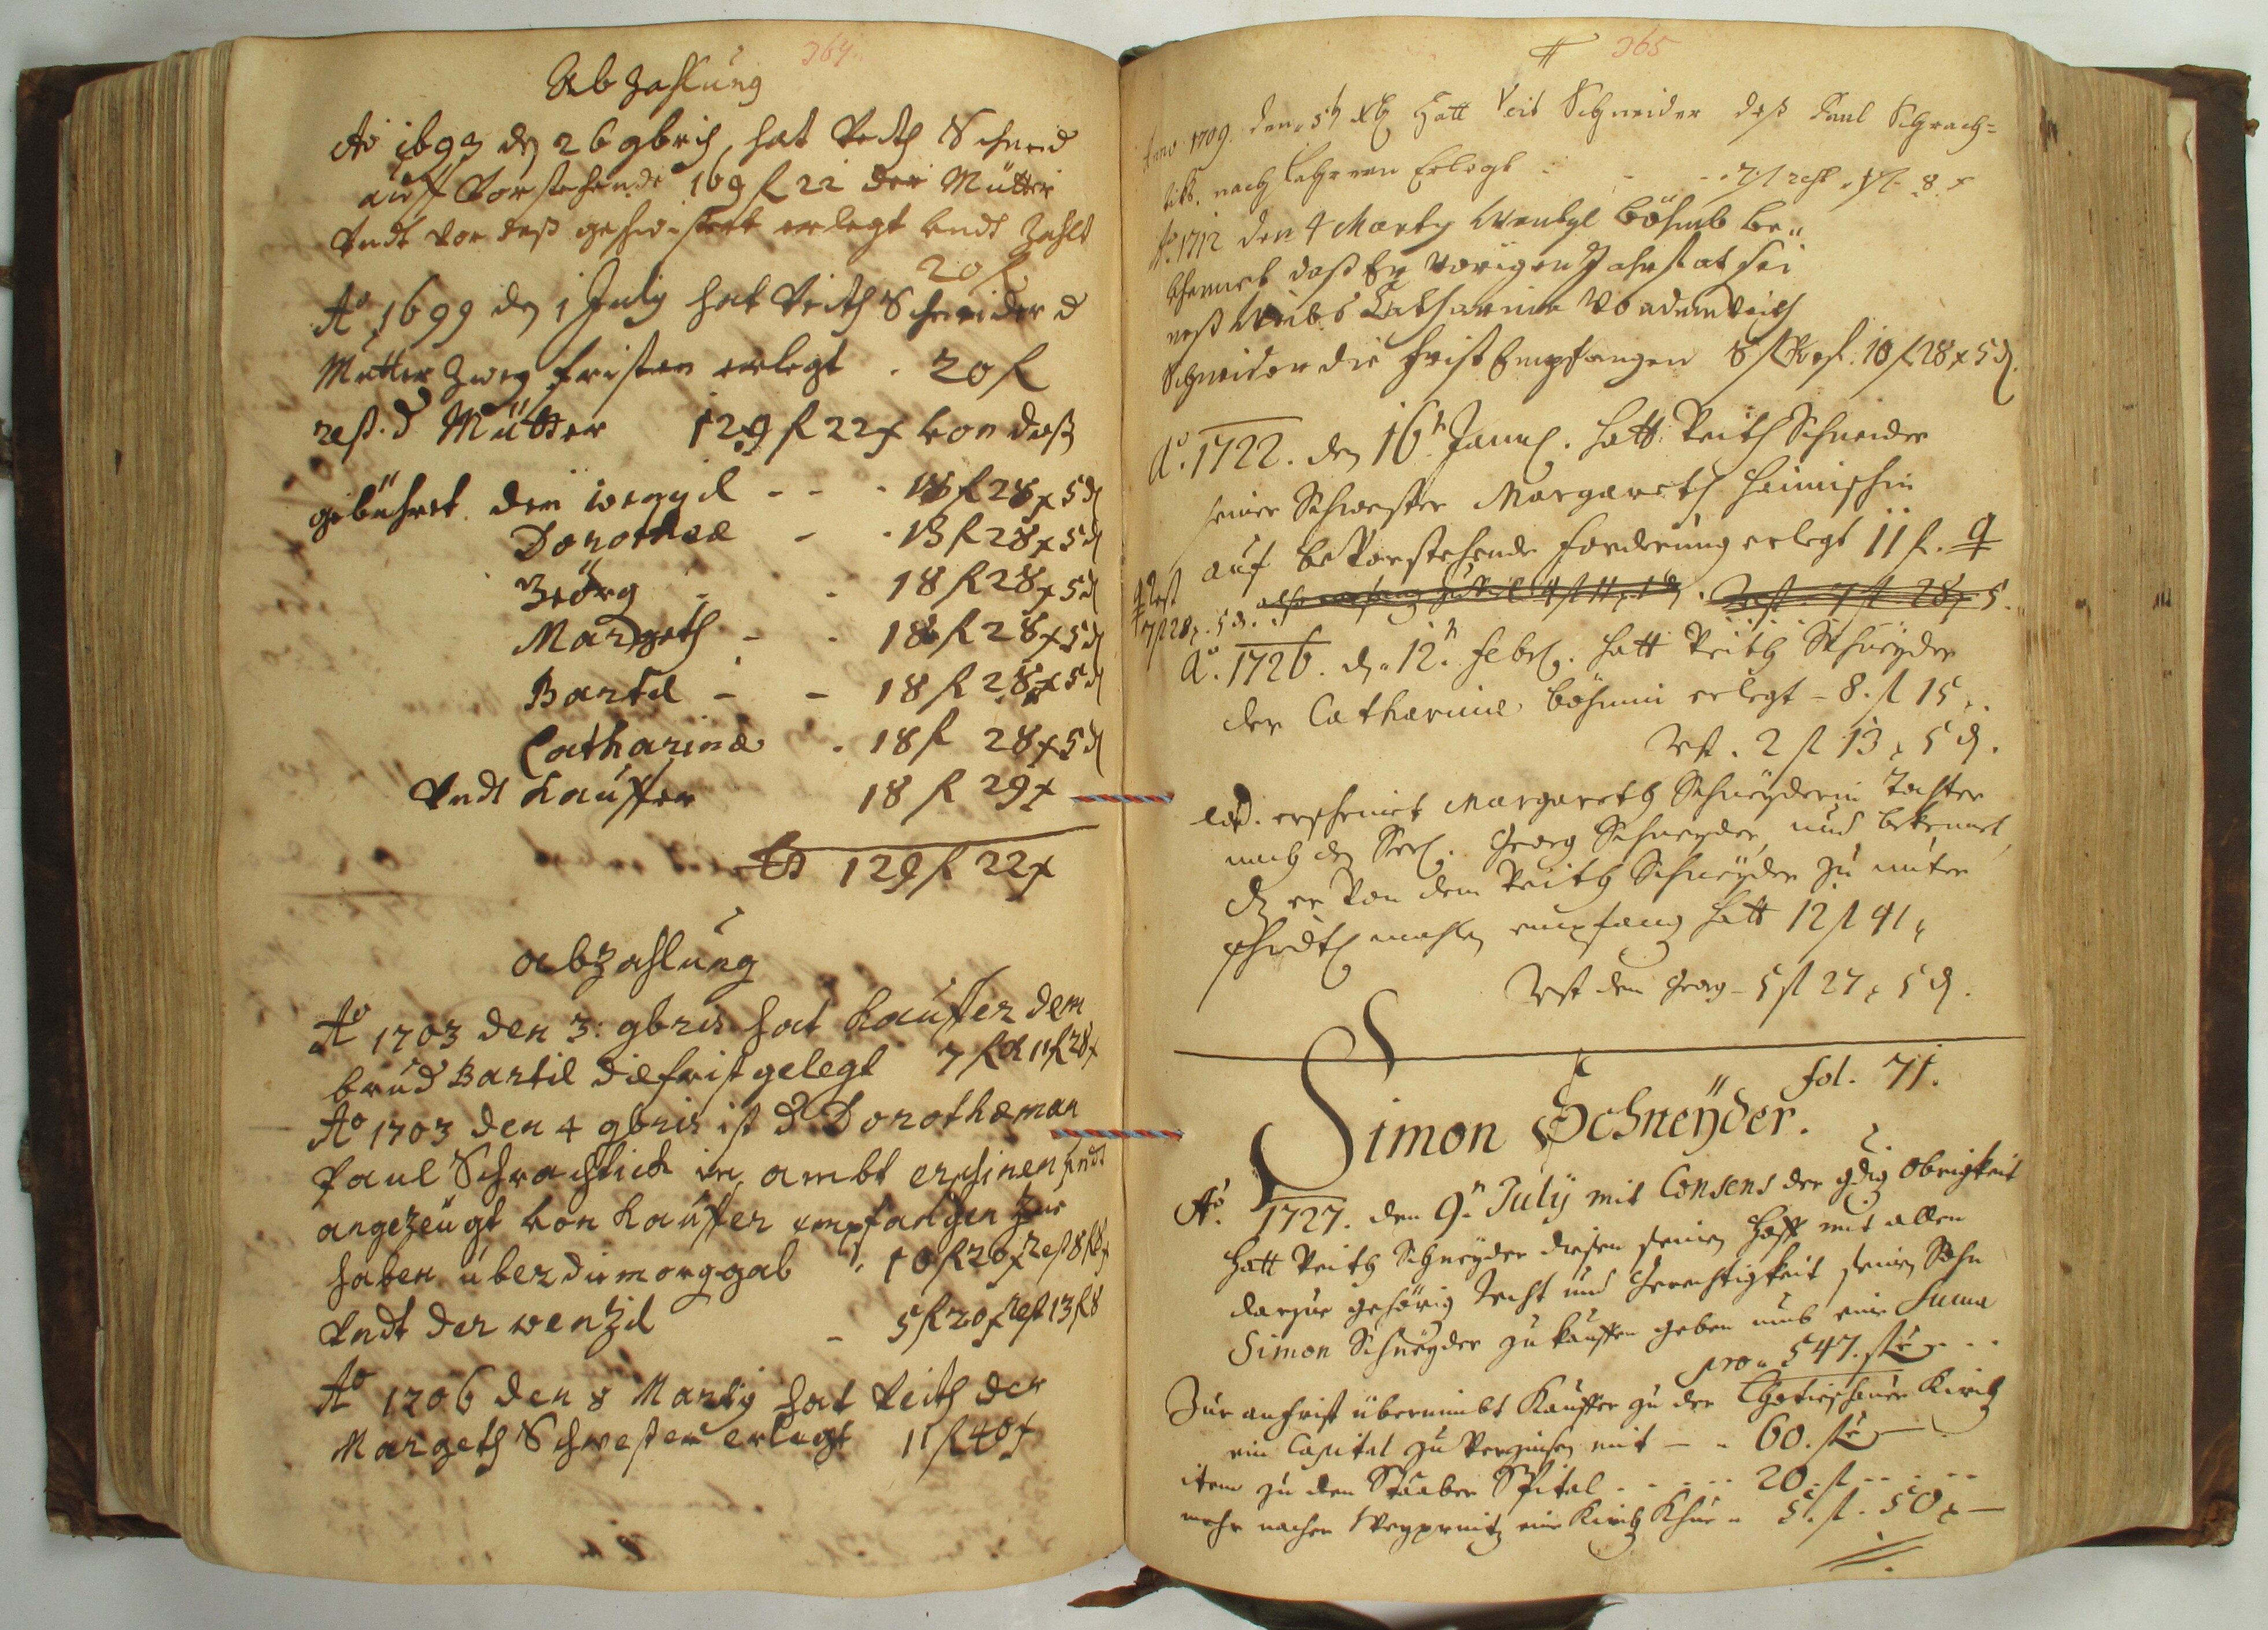 364
Abzahlung
Ao 1693 dꝫ 26 9bris, hat Veith Schneid
auff Vorstehende 169 f 22 der Mutter
Vndt von daß geschwistert erlegt vndt zahlt
20 f
Ao 1699 dꝫ 1 July hat Veith Schneider d
Mutter Zweÿ fristen erlegt . 20 f
rest. d Mütter 129 f 22 x von daß
gebühret den wenzil - - - 18 f 28 x 5 d
Dorothea - - 18 f 28 x 5 d
Geörg - - 18 f 28 x 5 d
Margeth - - 18 f 28 x 5 d
Bartil - - 18 f 28 x 5 d
Catharina . 18 f 28 x 5 d
Vndt Kauffer 18 f 29 x
129 f 22 x
abzahlung
Ao 1703 den 3: 9bris hat Kauffer dem
brud Bartil die frist gelegt 7 f R 11 f 28 x
Ao 1703 den 4 9bris ist d Dorothea man
Paul Schrachtich im ambt erschinen vndt
angezeugt von Kauffer empfangen zue
haben über die morggab 10 f 20 x Rest 8 f 8 x
Vndt der wenzil - 5 f 20 x Rest 13 f 8
Ao 1706 den 8 Martij hat Veith der
Margeth Schwester erlegt 11 f 40 x
365
Anno 1709. den 5t Xb Hatt Veit Schneider deß Paul Schrach=
nach Erlegt - - 7 f rest 1 f 8 x
Ao. 1712 den 4 Marty Wentzl Böhmb be=
khennet daß Er vorigen Jahr hat sei
neß Weibs Catharina Von dem Veith
Schneider die frist Empfangen 8 f Rest. 10 f 28 x 5 d.
Ao. 1722. dꝫ 16t Januar. hatt Veith Schneider
seiner Schwester Margareth
auf bevorstehende forderung erlegt 11 f.
Rest
7 f 28 x. 5 d. Rest. 7 f. 28 x 5.
Ao. 1726. d. 12t. febr. hatt Veith Schneyder
der Catharina Böhmin erlegt - 8. f 15 x.
Rest. 2 f 13 x 5 d.
eod. erscheinet Margareth Schneyderin Tochter
nach dꝫ Seel. Georg Schneyder, und bekennet,
dꝫ er von dem Veith Schneyder zu unter
mahlen empfang hatt 12 f 41 x
Rest dem Georg - 5 f 27 x 5 d.
fol. 71.
Simon Schneÿder.
Ao. 1727. den 9t July mit Consens der gdig Obrigkeit
hatt Veith Schneyder diesen seinen Hoff mit allen
darzue gehörig Recht und Gerechtigkeit seinen Sohn
Simon Schneyder zu kauffen geben umb eine Suma
pro 547. f
Zur anfrist übernimbt Kauffer zu der Kirch
ein Capital zu Verzinsen mit - - 60. f
item zu dem Staaber Spital - - - 20. f - - -
mehr nacher eine Kirch Khue - 5. f. 50 x